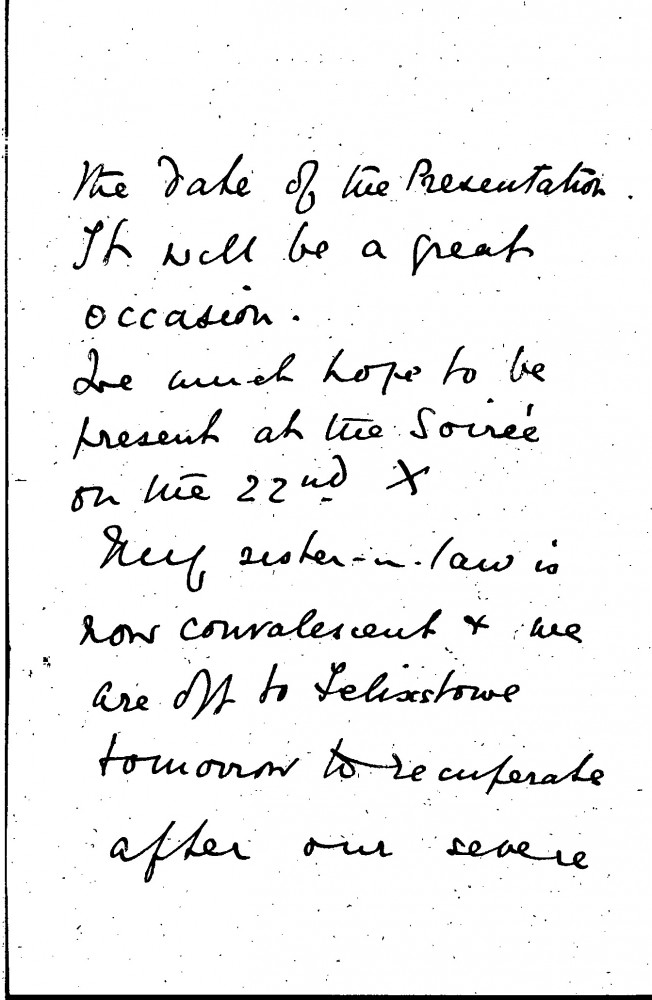 the date of the Presentation.
It will be a great
occasion.
We much hope to be
present at the Soirée
on the 22nd X
My sister-in-law is
now convalescent & we
are off to Felixstowe
tomorrow to recuperate
after our severe